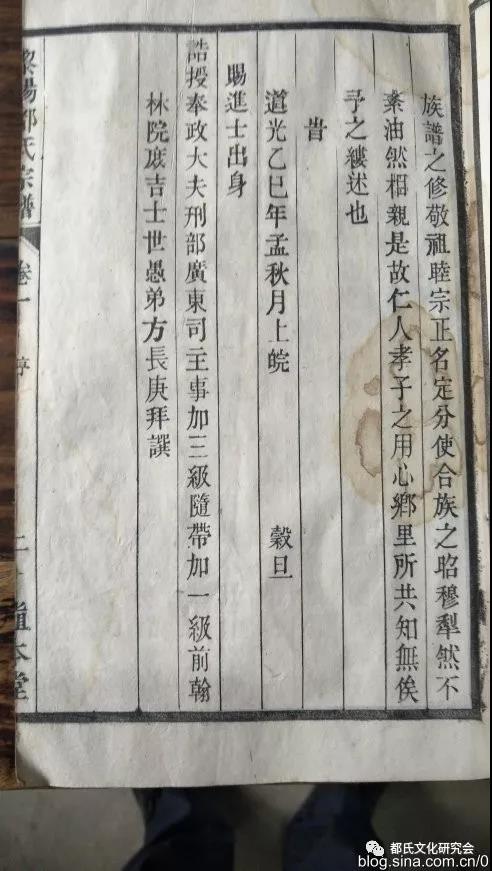 族譜之修敬祖睦宗正名定分使合族之昭穆犁然不
紊油然相親是故仁人孝子之用心鄉里所共知無俟
予之縷述也
旹
道光乙巳年孟秋月上皖 穀旦
賜進士出身
誥授奉政大夫刑部廣東司主事加三級隨帶加一級前翰
林院庶吉士世愚弟方長庚拜譔
氏宗譜 卷一 序 二 本堂
都氏文化研究会
blog.sina.com.cn/0